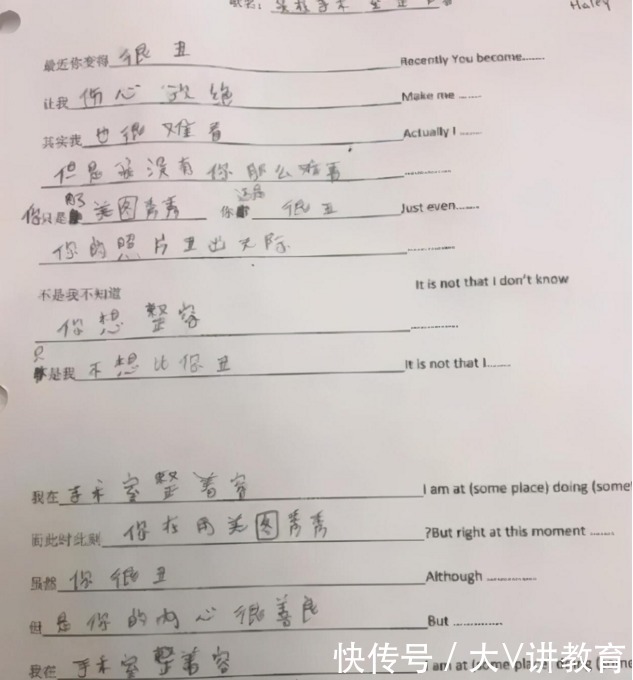 歌名：在手术室整着容
Haley
最近你变得 很丑 Recently You become......
让我 伤心欲绝 Make me ......
其实我 也很难看 Actually I ......
但是我没有你那么难看 ............
你只是 美图秀秀 你还是 很丑 Just even......
你的照片丑出天际 ............
不是我不知道 It is not that I don't know
你想整容 ............
只是我 不想比你丑 It is not that I......
我在 手术室整着容 I am at (some place) doing (some
而此时此刻 你在用美图秀秀 ?But right at this moment ......
虽然 你很丑 Although ............
但 是你的内心很善良 But ............
我在 手术室整着容 I am at (some place) doing (some
快传号 / 大V讲教育